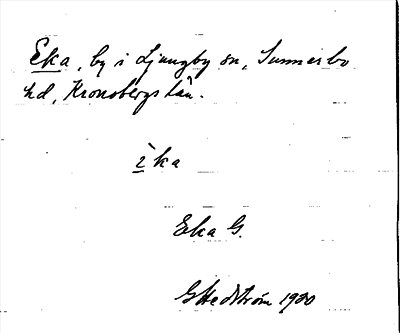 Eka, by i Ljungby sn, Sunnerbo
hd, Kronobergs län.
ı̀ka
Eka G.
GHedström 1980